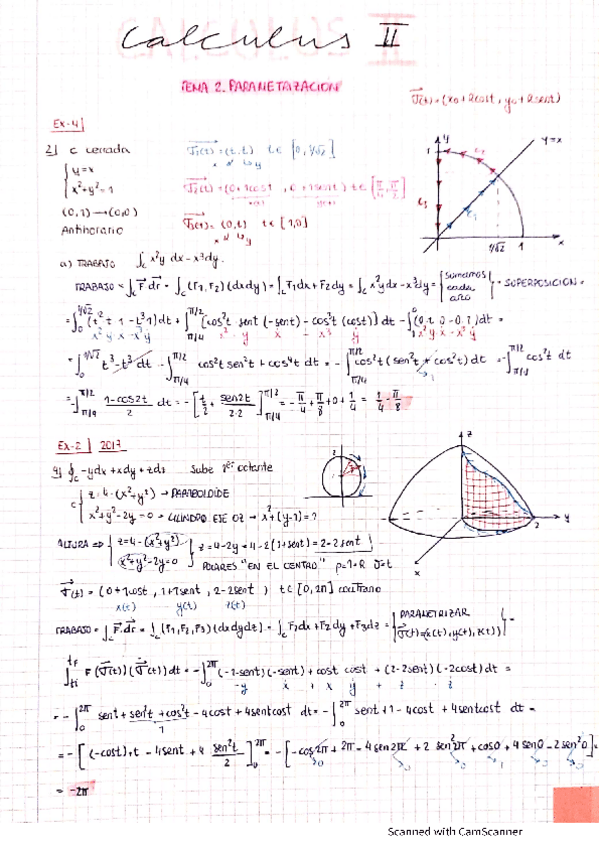 Calculus II
TEMA 2. PARAMETRIZACION
σ(t) = (x0 + 2cost, y0 + 2sent)
Ex-4
2) C cerrada
{ y=x
x²+y²=1
(0,1) → (0,0)
Antihorario
σ1(t) = (t,t) t∈ [0, 1/√2]
x y
σ2(t) = (0+1cost, 0+1sent) t∈ [π/4, π/2]
x(t) y(t)
σ3(t) = (0,t) t∈ [1,0]
x y
y
1
y=x
1/√2 1 x
a) TRABAJO ∫c x²y dx - x³dy.
TRABAJO = ∫c F dr = ∫c (F1,F2)(dxdy) = ∫c F1dx + F2dy = ∫c x²ydx - x³dy = { Sumamos cada arco } = SUPERPOSICION =
= ∫0^1/√2 (t²·t·1 - t³·1) dt + ∫π/4^π/2 [cos²t · sent (-sent) - cos³t (cost)] dt - ∫ (0·t·0 - 0·1) dt =
= ∫0^1/√2 t³ - t³ dt - ∫π/4^π/2 cos²t sen²t + cos⁴t dt = - ∫π/4^π/2 cos²t (sen²t + cos²t) dt = - ∫π/4^π/2 cos²t dt
= - ∫π/4^π/2 1-cos2t / 2 dt = - [t/2 + sen2t / 2·2]π/4^π/2 = - π/4 + π/8 + 0 + 1/4 = 1/4 - π/8
Ex-2 2017
9) ∮c -ydx + xdy + zdz Sube 1er octante
c { z = 4 - (x²+y²) → PARABOLOIDE
x²+y²-2y=0 → CILINDRO EJE OZ → x²+(y-1)=1
z
2 y
x
ALTURA ⇒ { z=4-(x²+y²)
x²+y²-2y=0 } z=4-2y = 4-2(1+sent) = 2-2sent
POLARES "EN EL CENTRO" ρ=1=R
σ(t) = (0+1cost, 1+1sent, 2-2sent) t∈[0,2π] contrario
x(t) y(t) z(t)
TRABAJO = ∫c F·dr = ∫c (F1,F2,F3)(dxdydz) = ∫c F1dx + F2dy + F3dz = { PARAMETRIZAR
σ(t)=(x(t), y(t), z(t)) } =
∫ti^tf F(σ(t))(σ(t)) dt = - ∫0^2π (-1-sent)(-sent) + cost cost + (2-2sent)(-2cost) dt =
-y x + x y + z · z
= - ∫0^2π sent + sen²t + cos²t - 4cost + 4sentcost dt = - ∫0^2π sent + 1 - 4cost + 4sentcost dt =
= - [(-cost) + t - 4sent + 4 sen²t / 2]0^2π = - [-cos2π + 2π - 4sen2π + 2 sen²2π + cos0 + 4sen0 - 2sen²0] =
= -2π
Scanned with CamScanner